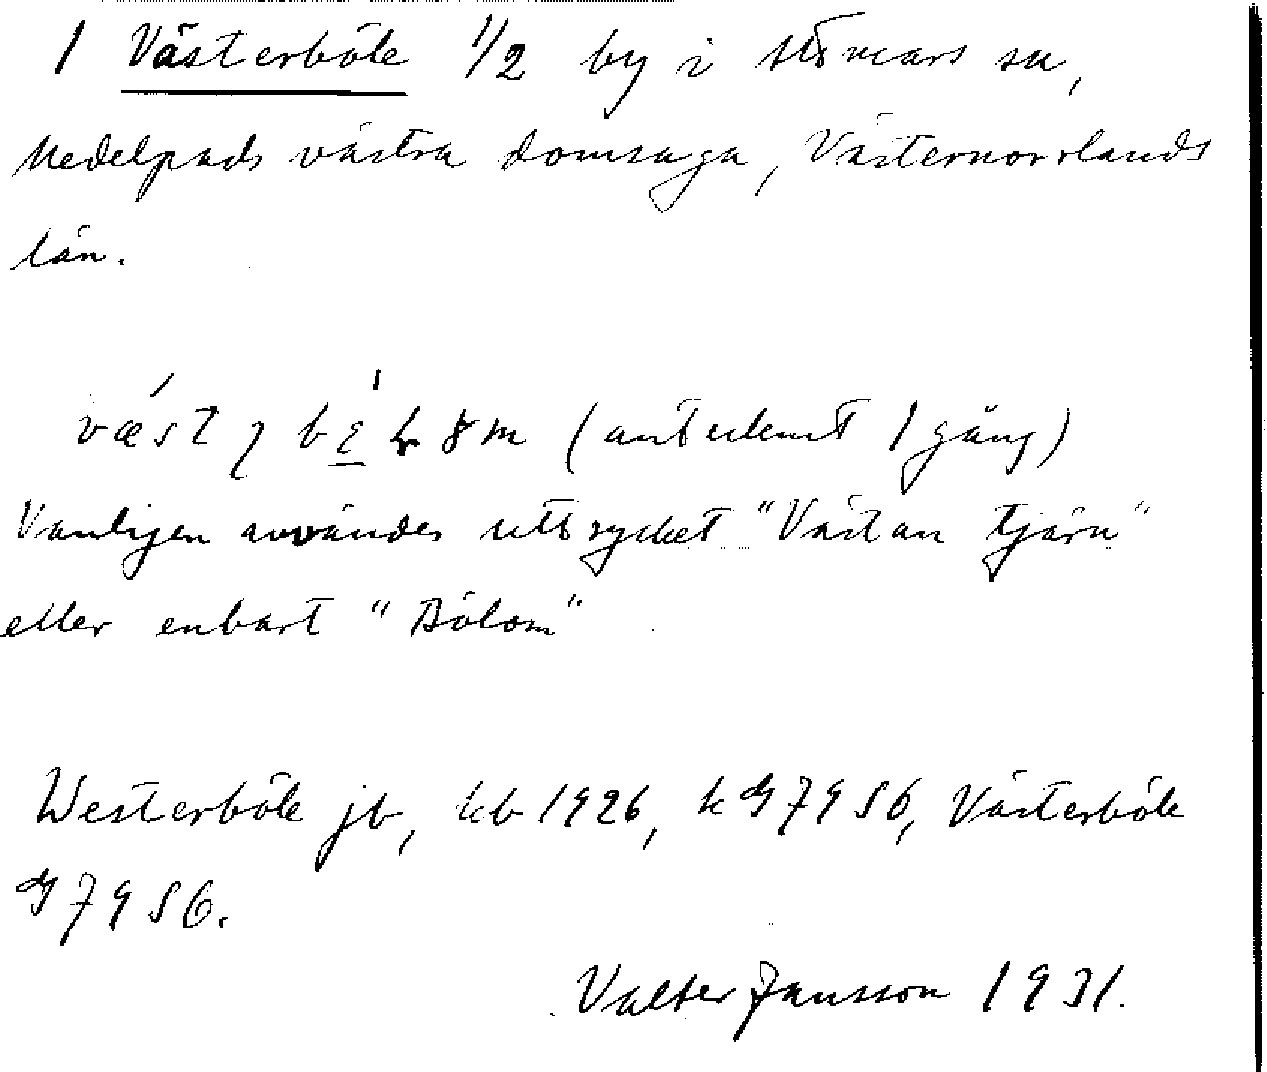 1 Västerböle 1/2 by i Attmars sn,
Medelpads västra domsaga, Västernorrlands
län.
(antecknat 1 gång)
Vanligen användes uttrycket "Västan tjärn"
eller enbart "Bölom"
Westerböle jb, kb 1926, k GJ 7956, Västerböle
GJ 7956.
Valter Jansson 1931.